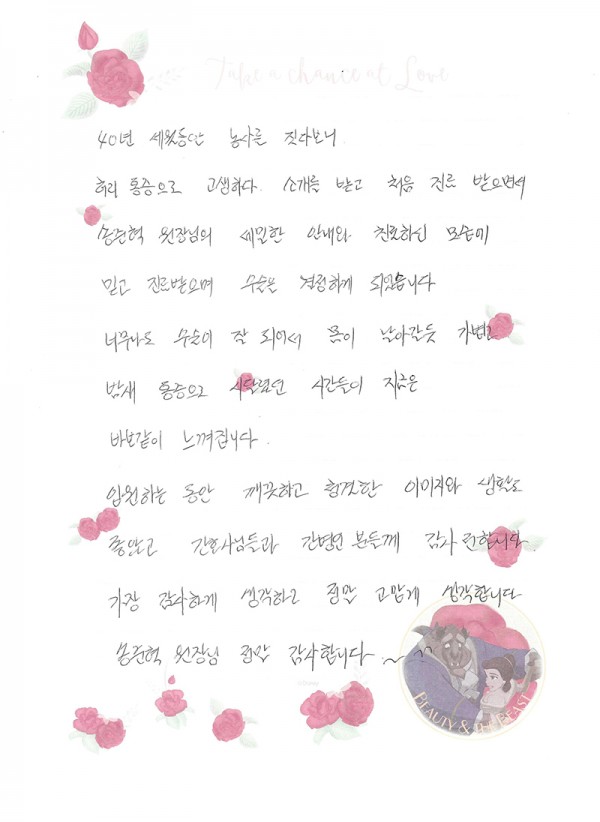 Take a chance at Love
40년 세월동안 농사를 짓다보니
허리 통증으로 고생하다. 소개를 받고 처음 진료 받으면서
송준혁 원장님의 세밀한 안내와 친절하신 모습에
믿고 진료받으며 수술을 결정하게 되었습니다
너무나도 수술이 잘 되어서 몸이 날아갈듯 가볍고
밤새 통증으로 시달렸던 시간들이 지금은
바보같이 느껴집니다.
입원하는 동안 깨끗하고 청결한 이미지와 생활도
좋았고 간호사님들과 간병인 분들께 감사 전합니다.
가장 감사하게 생각하고 정말 고맙게 생각합니다
송준혁 원장님 정말 감사합니다 ~ ^^
BEAUTY & THE BEAST